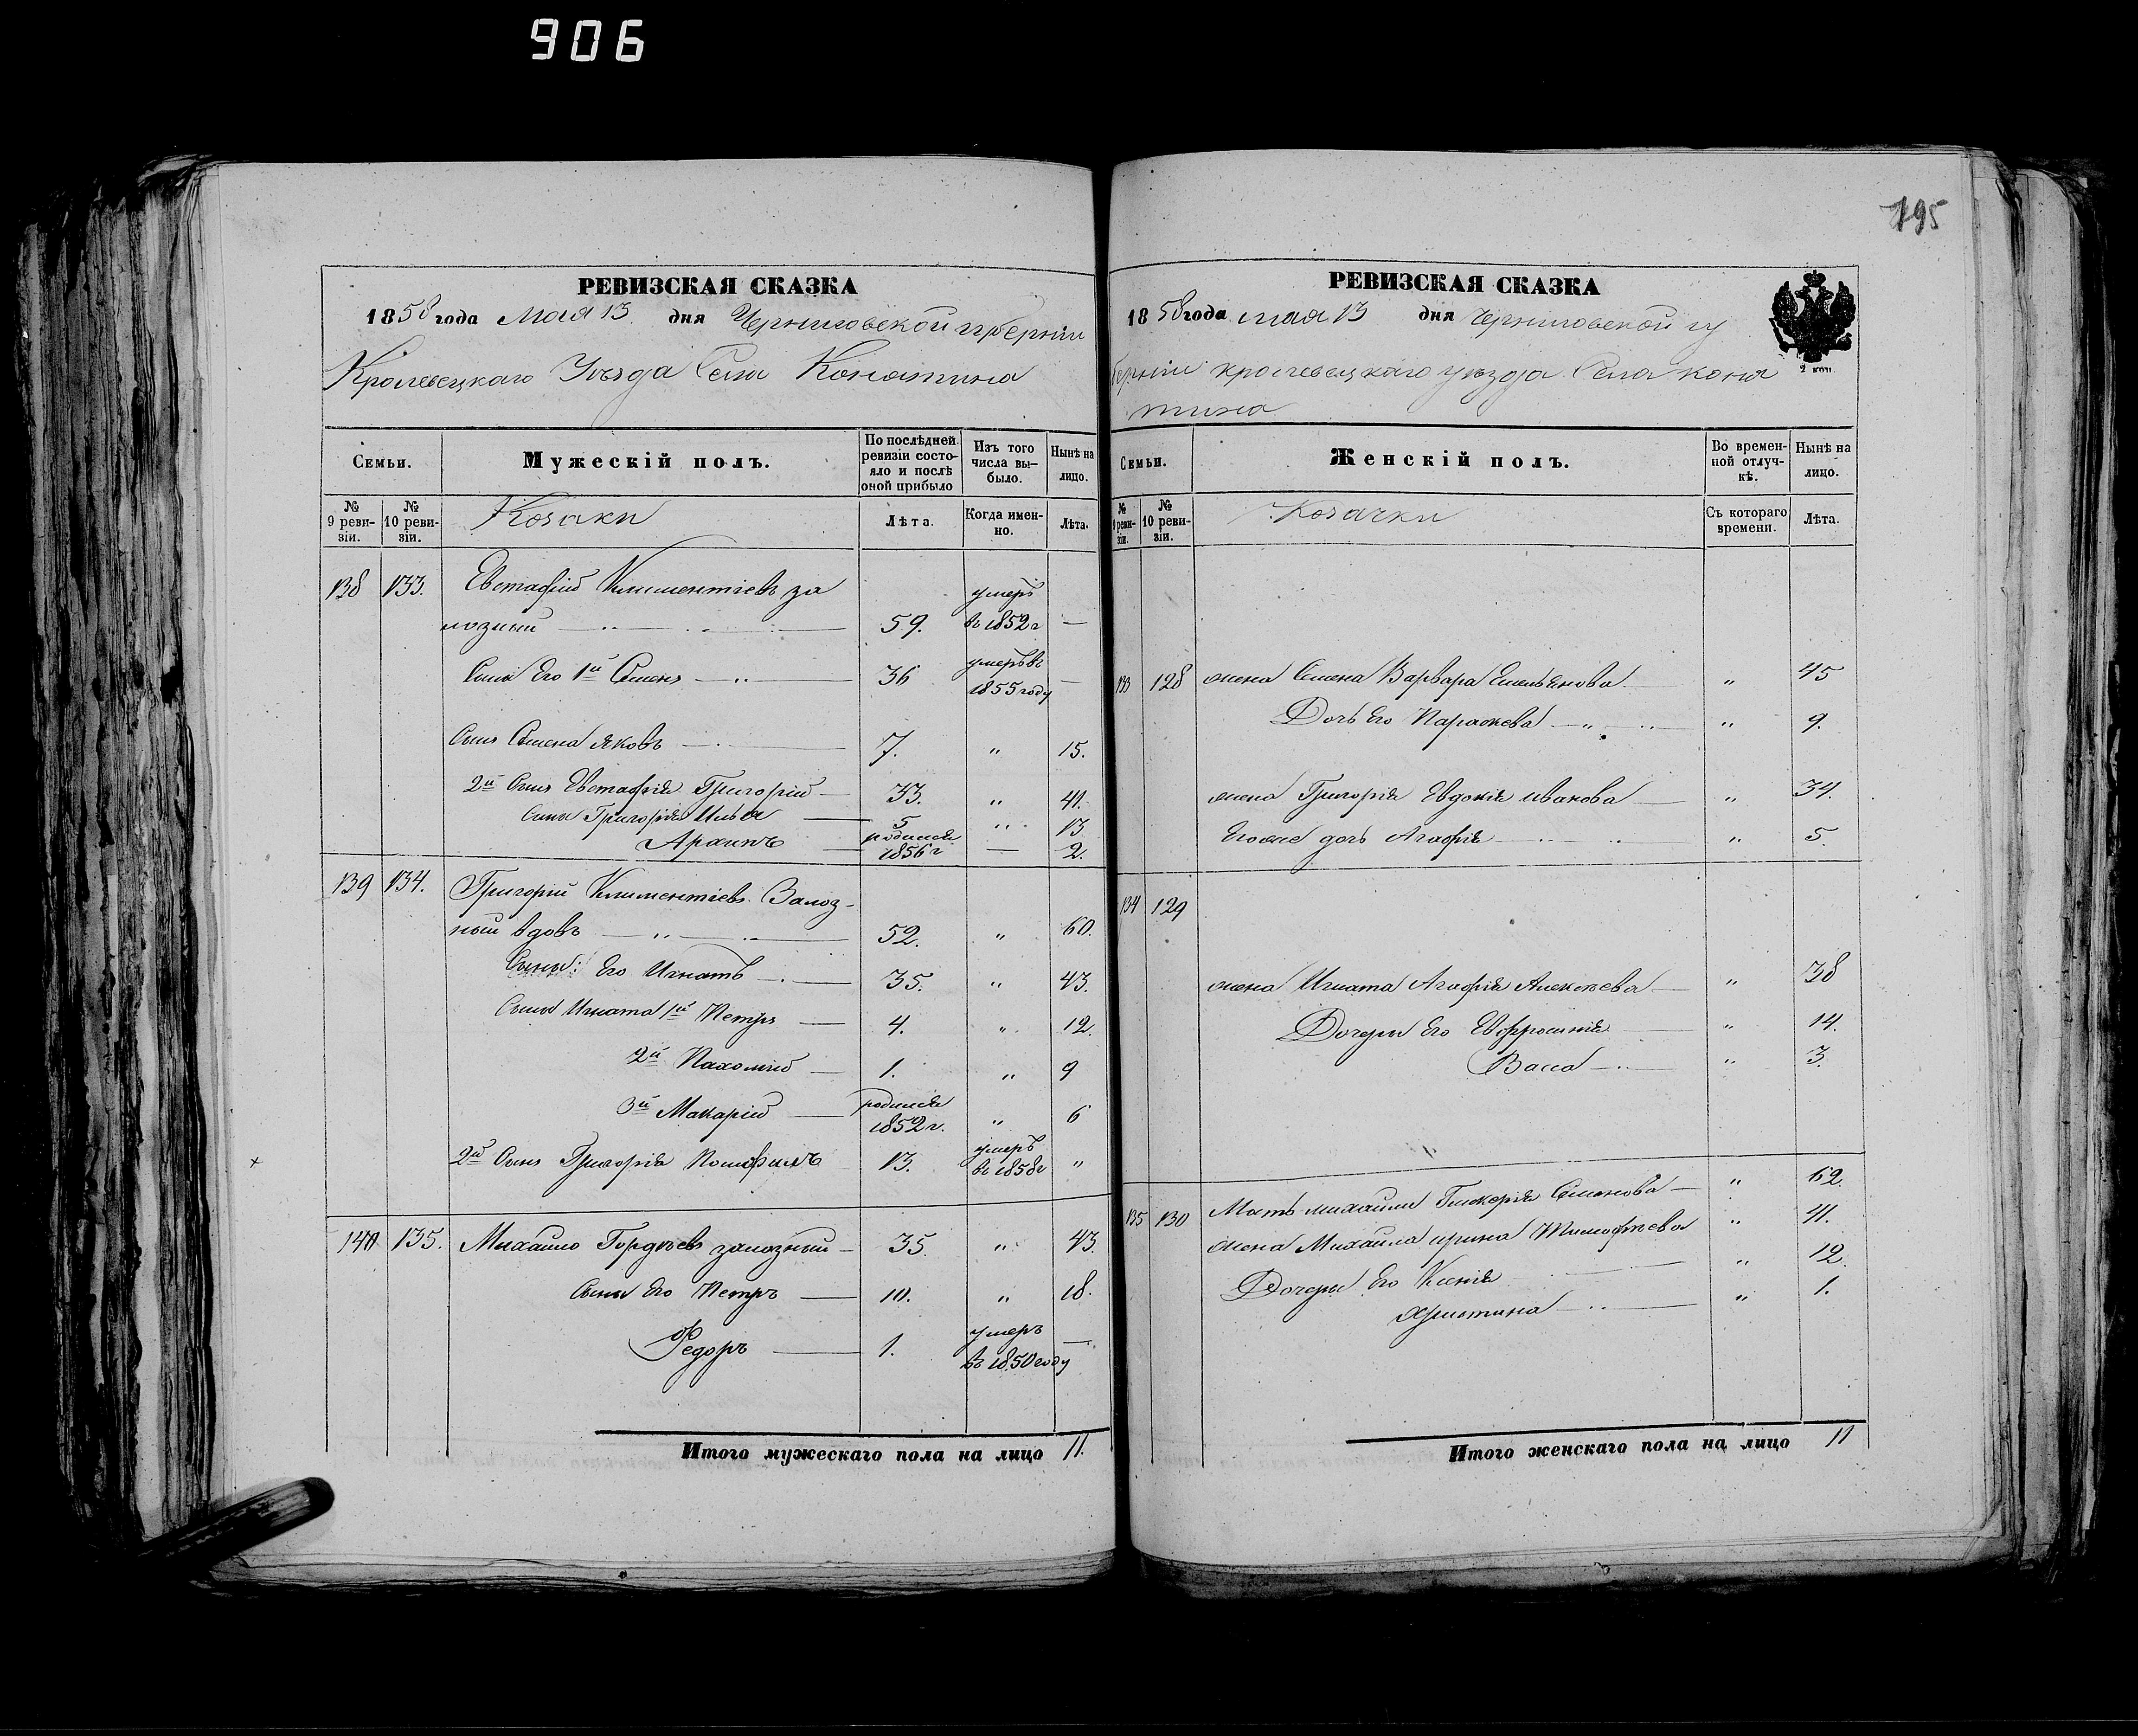 906
195
РЕВИЗСКАЯ СКАЗКА
1858 года Мая 13 дня Черниговской губерніи
Кролевецкаго Уѣзда Села Конятина
Семьи.
Мужескій полъ.
По послѣдней ревизіи состояло и послѣ оной прибыло
Изъ того числа выбыло.
Нынѣ на лицо.
№ 9 ревизіи.
№ 10 ревизіи.
Козаки
Лѣта.
Когда именно.
Лѣта.
138 133. Евстафій Климентіевъ за
лозный 59. умеръ въ 1852 г —
Сынъ Его 1й Семенъ 36 умеръ въ 1855 году —
Сынъ Семена Яковъ 7. " 15.
2й Сынъ Евстафія Григорій 33. " 41.
Сыны Григорія Илья 5 " 13
Архипъ родился 1856 г — 2.
139 134. Григорій Климентіевъ Залоз-
ный вдовъ 52. " 60.
Сыны: Его Игнатъ 35. " 43.
Сыны Игната 1й Петръ 4. " 12.
2й Пахомій 1. " 9
3й Макарій родился 1852 г. " 6
2й Сынъ Григорія 13. умеръ въ 1858 г "
140 135. Михайло Гордѣевъ залозный 35. " 43.
Сыны Его Петръ 10. " 18.
Федоръ 1. умеръ въ 1850 году —
Итого мужескаго пола на лицо 11.
РЕВИЗСКАЯ СКАЗКА
1858 года мая 13 дня Черниговской гу
берніи кролевецкаго уѣзда Села коня
тина
2 коп.
Семьи.
Женскій полъ.
Во временной отлучкѣ.
Нынѣ на лицо.
№ 9 ревизіи.
№ 10 ревизіи.
Козачки
Съ котораго времени.
Лѣта.
133 128 жена Семена Варвара Емельянова " 45
Дочь Его Параскева " 9.
жена Григорія Евдокія иванова " 34.
Егоже дочь Агафія " 5.
134 129
жена Игната Агафія Алексѣева " 38
Дочери Его Евфросинія " 14.
Васса " 3.
135 130 Мать михайлы Гликерія Семенова " 62.
жена Михайла ирина Тимофѣева " 41.
Дочери Его Ксенія " 12.
Христина " 1.
Итого женскаго пола на лицо 11